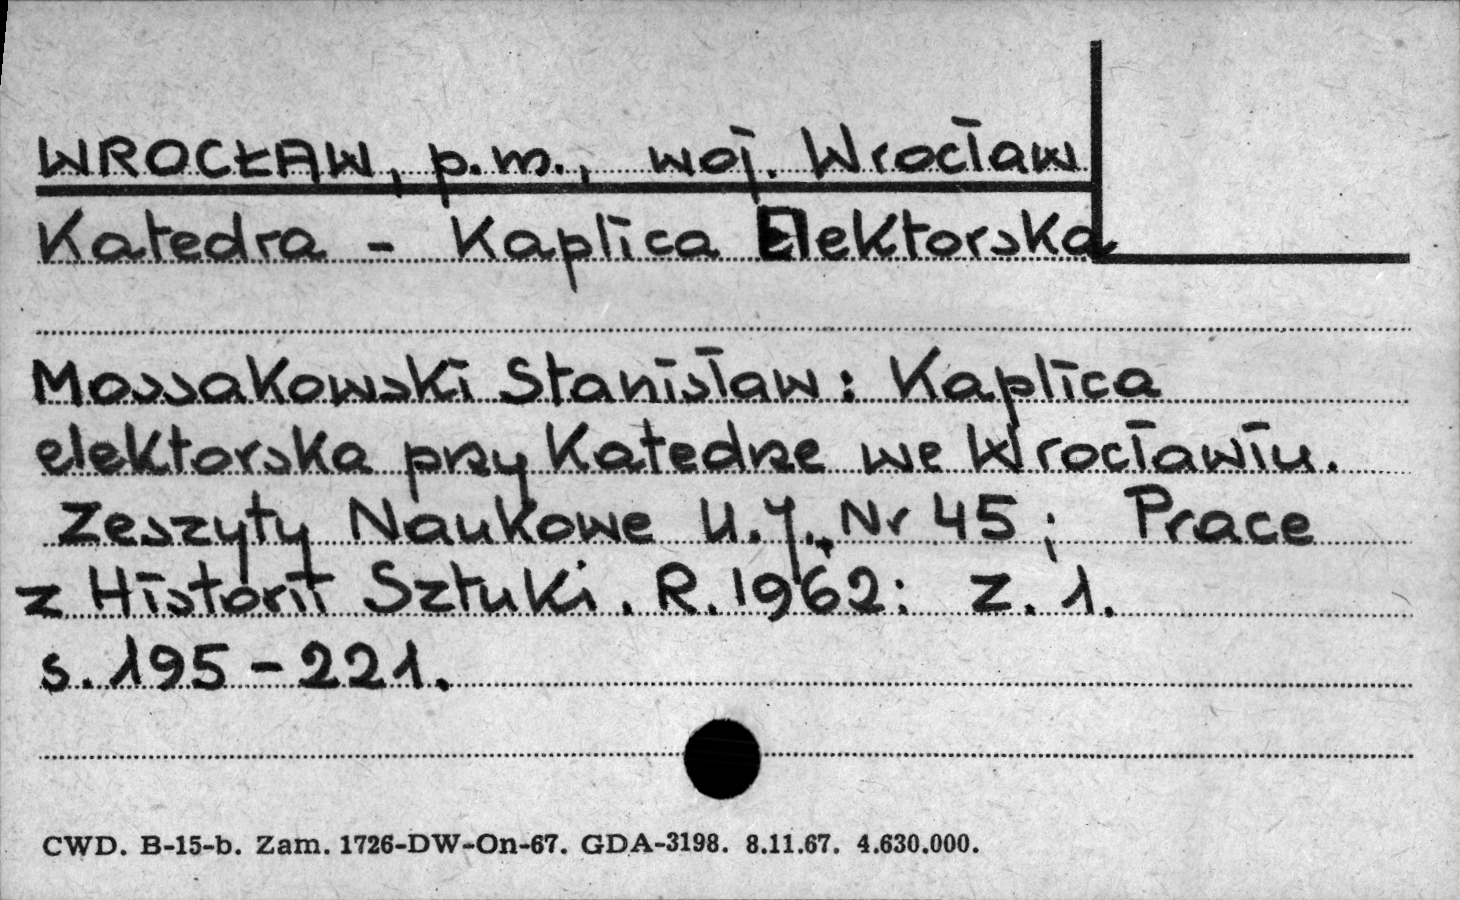 WROCŁAW, p.m., woj. Wrocław
Katedra - Kaplica Elektorska
Mossakowski Stanisław: Kaplica
elektorska przy Katedrze we Wrocławiu.
Zeszyty Naukowe U.J., Nr 45; Prace
z Historii Sztuki. R. 1962: Z. 1.
s. 195-221.
CWD. B-15-b. Zam. 1726-DW-On-67. GDA-3198. 8.11.67. 4.630.000.